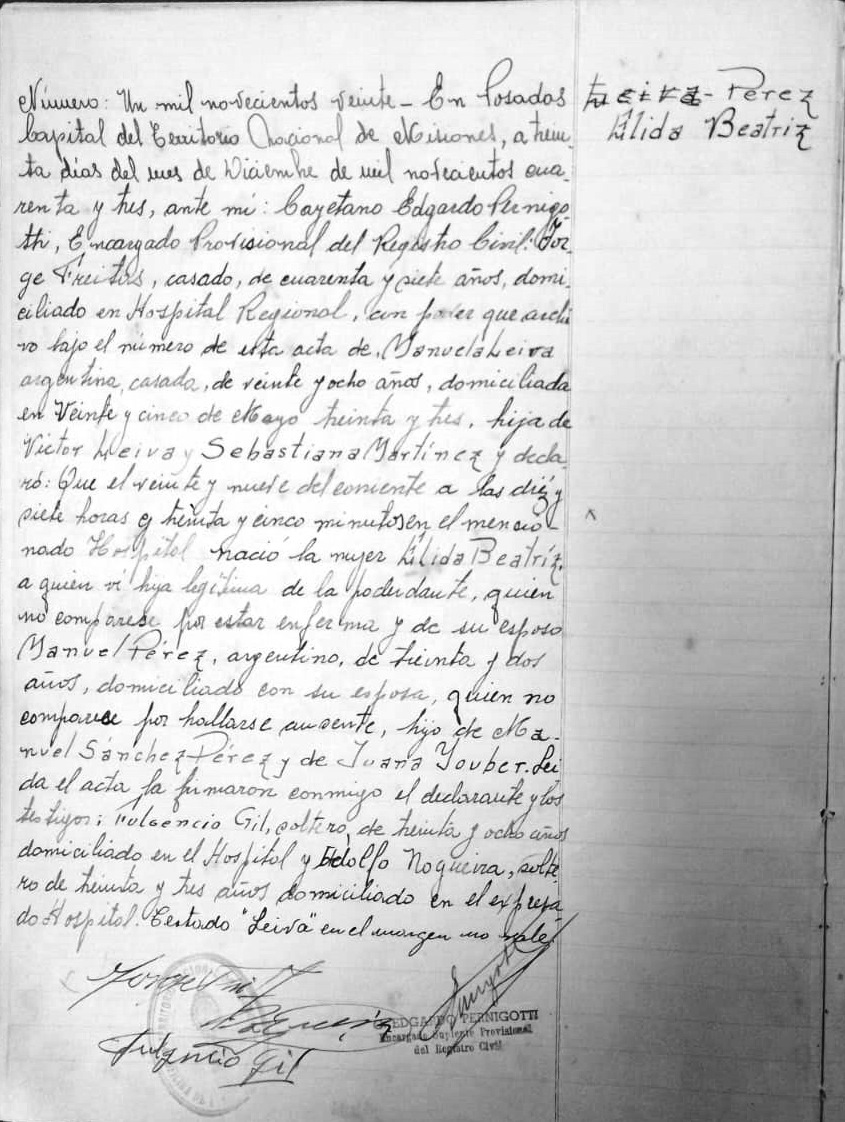 Número: Un mil novecientos veinte - En Posadas
Capital del Territorio Nacional de Misiones, a trein-
ta días del mes de Diciembre de mil novecientos cua-
renta y tres, ante mí: Cayetano Edgardo Pernigo-
tti, Encargado Provisional del Registro Civil: Jor-
ge Freitas, casado, de cuarenta y siete años, domi-
ciliado en Hospital Regional, con poder que archi
vo bajo el número de esta acta de, Manuela Leiva
argentina, casada, de veinte y ocho años, domiciliada
en Veinte y cinco de Mayo treinta y tres, hija de
Victor Leiva y Sebastiana Martínez y decla-
ró: Que el veinte y nueve del corriente a las diéz y
siete horas y treinta y cinco minutos en el mencio-
nado Hospital nació la mujer Élida Beatríz,
a quien ví hija legítima de la poderdante, quien
no comparece por estar enferma y de su esposo
Manuel Pérez, argentino, de treinta y dos
años, domiciliado con su esposa, quien no
comparece por hallarse ausente, hijo de Ma-
nuel Sánchez Pérez y de Juana Youber. Lei
da el acta la firmaron conmigo el declarante y los
testigos: Fulgencio Gil, soltero, de treinta y ocho años
domiciliado en el Hospital y Adolfo Nogueira, solte-
ro de treinta y tres años domiciliado en el expresa-
do Hospital. Testado "Leiva" en el margen no vale
Leiva - Pérez
Élida Beatriz
Fulgencio Gil
EDGARDO PERNIGOTTI
Encargado Suplente Provisional
del Registro Civil